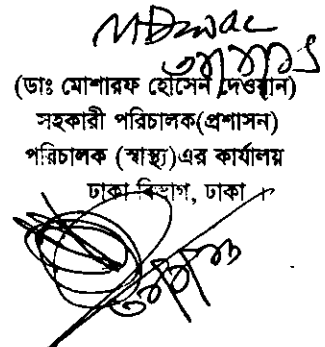 (ডাঃ মোশারফ হোসেন দেওয়ান)
সহকারী পরিচালক(প্রশাসন)
পরিচালক (স্বাস্থ্য)এর কার্যালয়
ঢাকা বিভাগ, ঢাকা ।